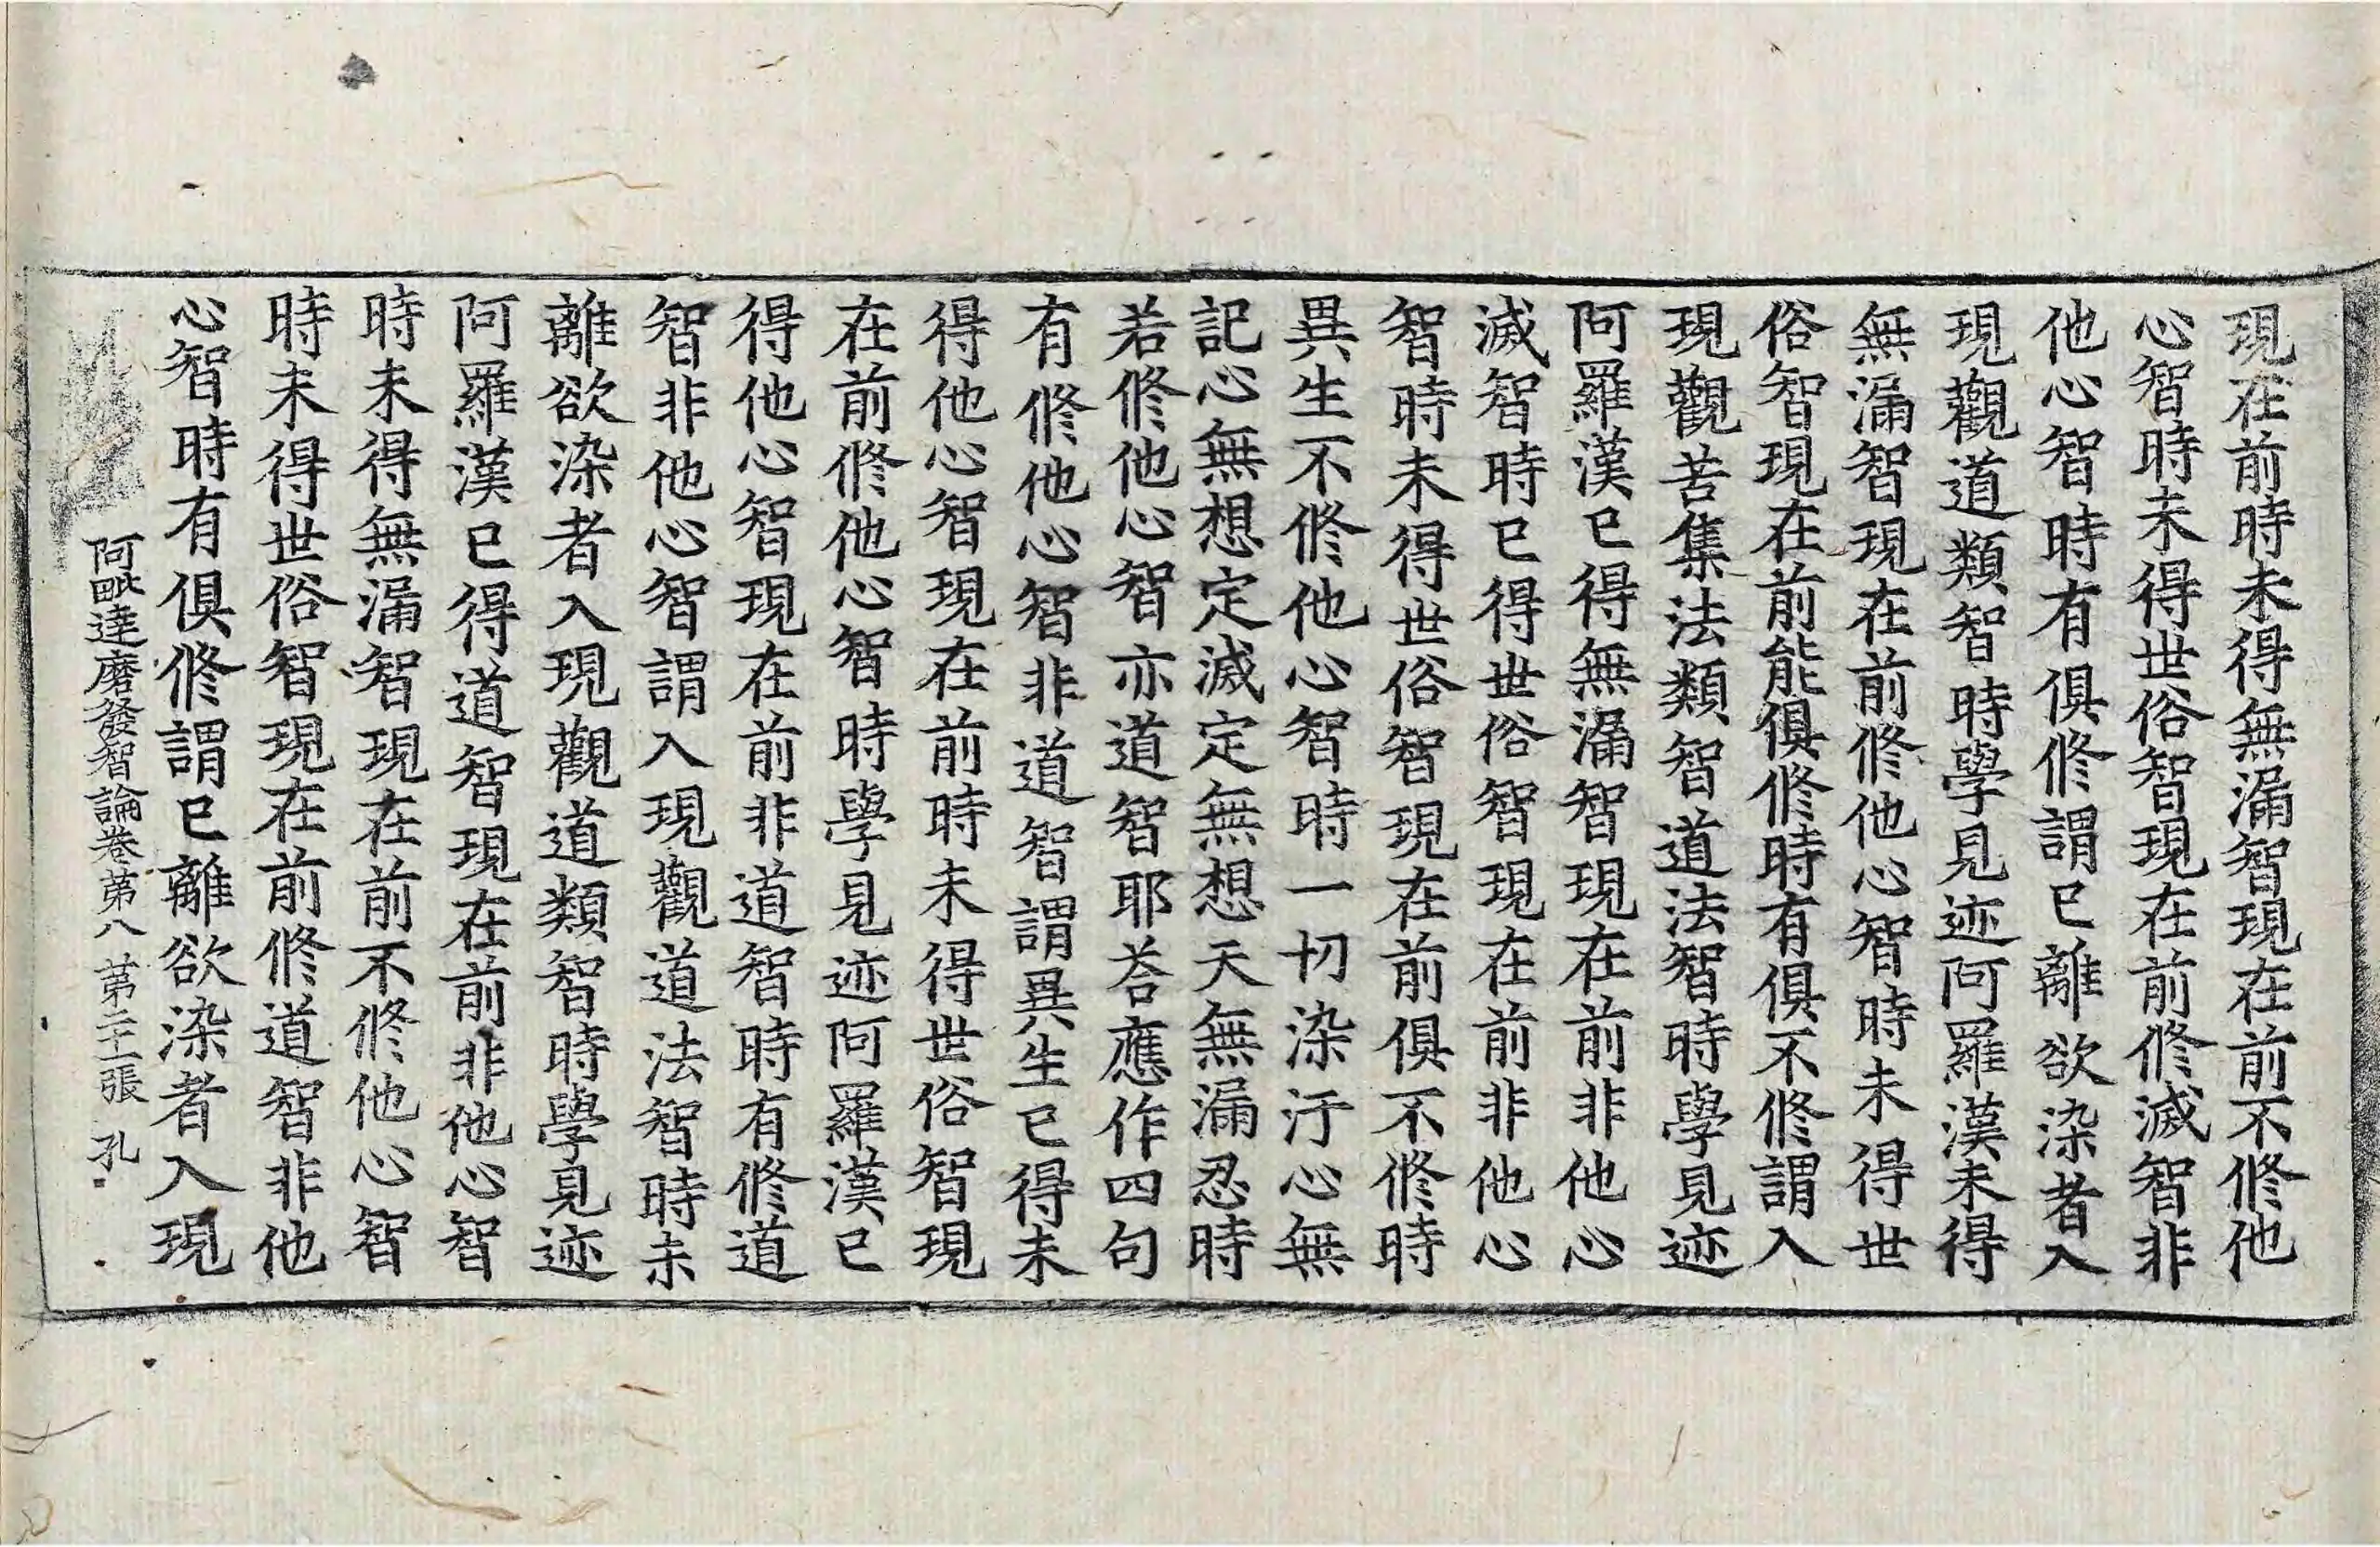 現在前時未得無漏智現在前不修他
心智時未得世俗智現在前修滅智非
他心智時有俱修謂已離欲染者入
現觀道類智時學見迹阿羅漢未得
無漏智現在前修他心智時未得世
俗智現在前能俱修時有俱不修謂入
現觀苦集法類智道法智時學見迹
阿羅漢已得無漏智現在前非他心
滅智時已得世俗智現在前非他心
智時未得世俗智現在前俱不修時
異生不修他心智時一切染汙心無
記心無想定滅定無想天無漏忍時
若修他心智亦道智耶荅應作四句
有修他心智非道智謂異生已得未
得他心智現在前時未得世俗智現
在前修他心智時學見迹阿羅漢已
得他心智現在前非道智時有修道
智非他心智謂入現觀道法智時未
離欲染者入現觀道類智時學見迹
阿羅漢已得道智現在前非他心智
時未得無漏智現在前不修他心智
時未得世俗智現在前修道智非他
心智時有俱修謂已離欲染者入現
阿毗達磨發智論卷苐八 苐二十一張 孔